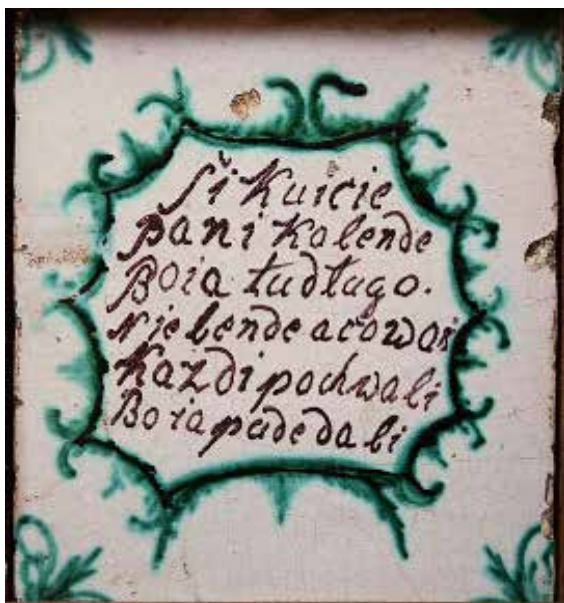 Ši Kuicie
Pani Kolende
Boia tudługo.
Nie bende acowai
Każdi pochwali
Boia pude dali